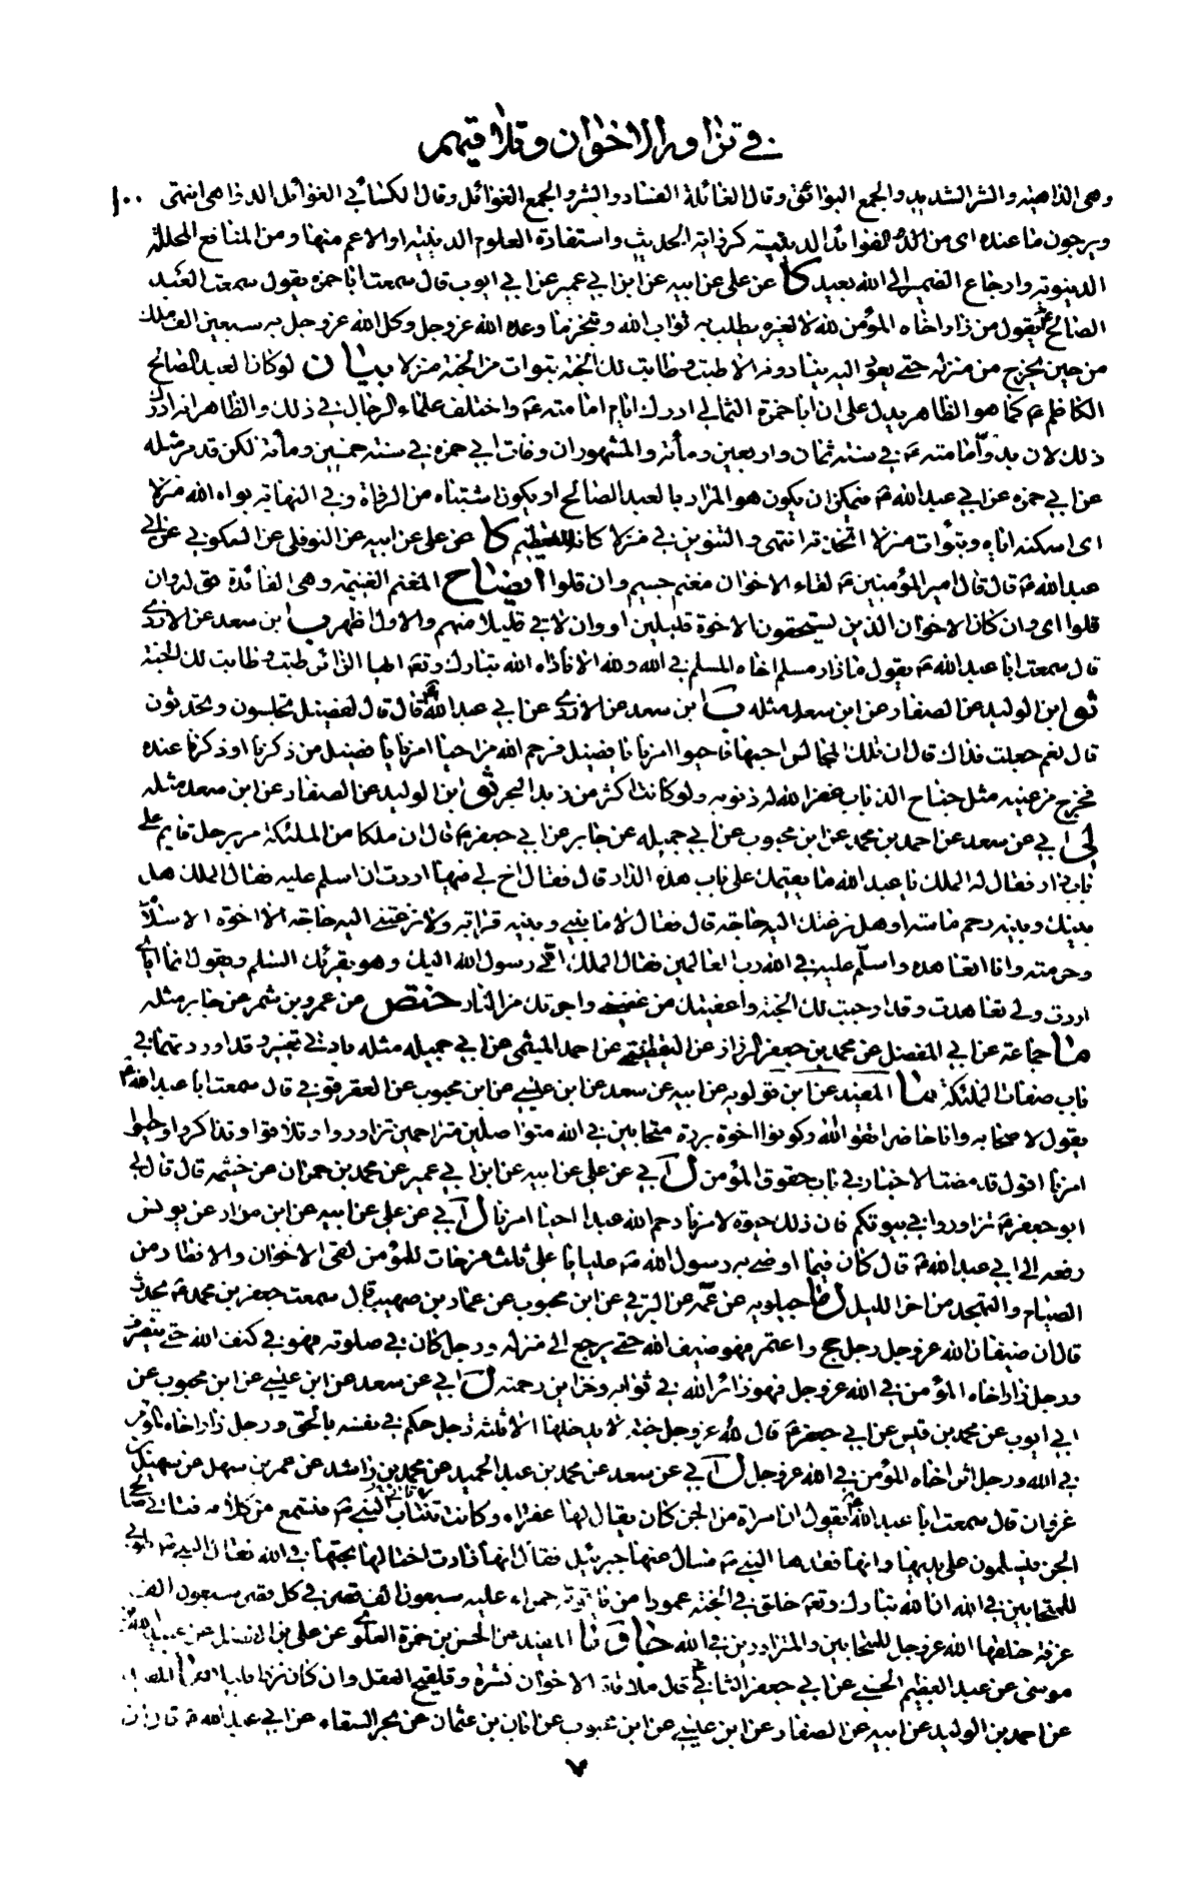 في تزاور الاخوان وتلاقيهم
وهى الداهية والشر الشديد والجمع البوائق وقال الغائلة الفساد والشر والجمع الغوائل وقال الكسائى الغوائل الدواهى انتهى ١٠٠
ويرجون ما عنده اى من الفوائد الدينية كرواية الحديث واستفادة العلوم الدينية او الاعم منها ومن المنافع المحللة
الدينوية وارجاع الضمير الى الله بعيد كا عن على عن ابيه عن ابن ابي عمير عن ابي ايوب قال سمعت ابا حمزه يقول سمعت العبد
الصالح يقول من زار اخاه المؤمن لله لا لغيره يطلب به ثواب الله وتنجز ما وعده الله عز وجل وكل الله عز وجل به سبعين الف ملك
من حين يخرج من منزله حتى يعود اليه ينادونه الا طبت وطابت لك الجنة تبوأت من الجنة منزلا بيان لو كان العبد الصالح
الكاظم ع كما هو الظاهر يدل على ان ابا حمزة الثمالي ادرك ايام امامته ع واختلف علماء الرجال في ذلك والظاهر انه ادرك
ذلك لان بدو امامته ع في سنة ثمان واربعين ومأة والمشهور ان وفات ابي حمزه في سنة خمسين ومأة لكن قد مر مثله
عن ابي حمزه عن ابي عبد الله ع فيمكن ان يكون هو المراد بالعبد الصالح او يكون اشتباه من الرواة وفي النهاية بواه الله منزلا
اى اسكنه اياه وتبوأت منزلا اتخذته انتهى والتنوين في منزلا كانه للتعظيم كا عن على عن ابيه عن النوفلى عن السكونى عن ابي
عبد الله ع قال قال امير المؤمنين ع لقاء الاخوان مغنم جسيم وان قلوا ايضاح المغنم الغنيمة وهى الفائدة قوله وان
قلوا اى وان كان الاخوان الذين يستحقون الاخوة قليلين او وان لاقى قليلا منهم والاول اظهر ب ابن سعد عن الازدى
قال سمعت ابا عبد الله ع يقول ما زار مسلم اخاه المسلم في الله ولله الا ناداه الله تبارك وتعه ايها الزائر طبت وطابت لك الجنة
ثو ابن الوليد عن الصفار عن ابن سعد مثله ب ابن سعد عن الازدى عن ابي عبد الله ع قال قال لفضيل تجلسون وتحدثون
قال نعم جعلت فداك قال ان تلك المجالس احبها فاحيوا امرنا يا فضيل فرحم الله من احيا امرنا يا فضيل من ذكرنا او ذكرنا عنده
فخرج من عينه مثل جناح الذباب غفر الله له ذنوبه ولو كانت اكثر من زبد البحر ثو ابن الوليد عن الصفار عن ابن سعد مثله
لى ابي عن سعد عن احمد بن محمد عن ابن محبوب عن ابي جميله عن جابر عن ابي جعفر ع قال ان ملكا من الملئكة مر برجل قايم على
باب دار فقال له الملك يا عبد الله ما يقيمك على باب هذه الدار قال فقال اخ لى فيها اردت ان اسلم عليه فقال الملك هل
بينك وبينه رحم ماسة او هل نزعتك اليه حاجة قال فقال لا ما بينى وبينه قرابة ولا نزعتنى اليه حاجة الا اخوة الاسلام
وحرمته وانا اتعاهده واسلم عليه في الله رب العالمين فقال الملك انى رسول الله اليك وهو يقرئك السلم ويقول انما اياى
اردت ولى تعاهدت وقد اوجبت لك الجنة واعفيتك من غضبى واجرتك من النار ختص عن عمرو بن شمر عن جابر مثله
ما جماعة عن ابي المفضل عن محمد بن جعفر الرزاز عن اليقطينى عن احمد الميثمى عن ابي جميله مثله بادنى تغيير وقد اوردتهما في
باب صفات الملئكة ما المفيد عن ابن قولويه عن ابيه عن سعد عن ابن عيسى عن ابن محبوب عن العقرقوفى قال سمعت ابا عبد الله ع
يقول لاصحابه وانا حاضر اتقوا الله وكونوا اخوة بررة متحابين في الله متواصلين متراحمين تزاوروا وتلاقوا وتذاكروا واحيوا
امرنا اقول قد مضت الاخبار في باب حقوق المؤمن ل ابي عن على عن ابيه عن ابن ابي عمير عن محمد بن حمران عن خيثمه قال قال لى
ابو جعفر ع تزاوروا في بيوتكم فان ذلك حيوة لامرنا رحم الله عبدا احيا امرنا ل ابي عن على عن ابيه عن ابن مرار عن يونس
رفعه الى ابي عبد الله ع قال كان فيما اوصى به رسول الله ص عليا يا على ثلث فرحات للمؤمن لقى الاخوان والافطار من
الصيام والتهجد من اخر الليل ل ماجيلويه عن عمه عن البرقى عن ابن محبوب عن عباد بن صهيب قال سمعت جعفر بن محمد ع يحدث
قال ان ضيفان الله عز وجل رجل حج واعتمر فهو ضيف الله حتى يرجع الى منزله ورجل كان في صلوته فهو في كنف الله حتى ينصرف
ورجل زار اخاه المؤمن في الله عز وجل فهو زائر الله في ثوابه وخزاين رحمته ل ابي عن سعد عن ابن عيسى عن ابن محبوب عن
ابي ايوب عن محمد بن قيس عن ابي جعفر ع قال لله عز وجل جنة لا يدخلها الا ثلثة رجل حكم في نفسه بالحق ورجل زار اخاه المؤمن
في الله ورجل اثر اخاه المؤمن في الله عز وجل ل ابي عن سعد عن محمد بن عبد الحميد عن محمد بن راشد عن عمر بن سهل عن سهيل بن
غزوان قال سمعت ابا عبد الله ع يقول ان امراة من الجن كان يقال لها عفراء وكانت تنتاب النبى ص فتسمع من كلامه فتاتى صالحى
الجن فيسلمون على يديها وانها فقدها النبى ص فسال عنها جبرئيل فقال انها زارت اختا لها تحبها في الله فقال النبى ص طوبى
للمتحابين في الله ان الله تبارك وتعه خلق في الجنة عمودا من ياقوتة حمراء عليه سبعون الف قصر في كل قصر سبعون الف
غرفة خلقها الله عز وجل للمتحابين والمتزاورين في الله جا ما المفيد عن الحسن بن حمزة العلوى عن على بن الفضل عن عبيد الله بن
موسى عن عبد العظيم الحسنى عن ابي جعفر الثانى ع قال ملاقاة الاخوان نشرة وتلقيح العقل وان كان نزرا قليلا
عن احمد بن الوليد عن ابيه عن الصفار عن ابن عيسى عن ابن محبوب عن ابان بن عثمان عن بحر السقاء عن ابي عبد الله ع قال ان
٧